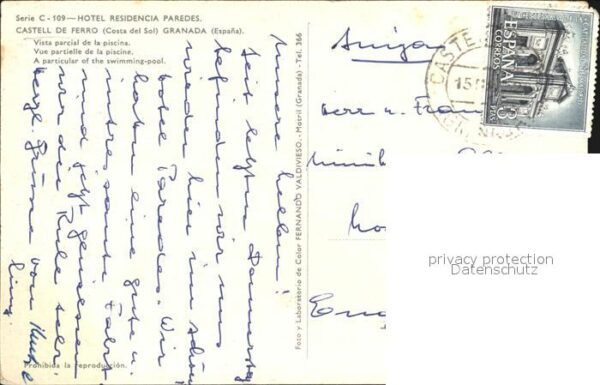 Serie C - 109 — HOTEL RESIDENCIA PAREDES.
CASTELL DE FERRO (Costa del Sol) GRANADA (España).
Vista parcial de la piscina.
Vue partielle de la piscine.
A particular of the swimming-pool.
Unsere Lieben!
Seit letzten Donnerstag
befinden wir uns
wieder hier im schönen
Hotel Paredes. Wir
haben eine gute u.
interessante Fahrt
sind jetzt geniessen
wir die Ruhe sehr.
herzl. Grüsse von
Prohibida la reproducción.
Foto y Laboratorio de Color FERNANDO VALDIVIESO. - Motril (Granada) - Tel. 366
CASTE
15
ESPAÑA
CORREOS
3
PTAS
Herr u. Frau
privacy protection
Datenschutz